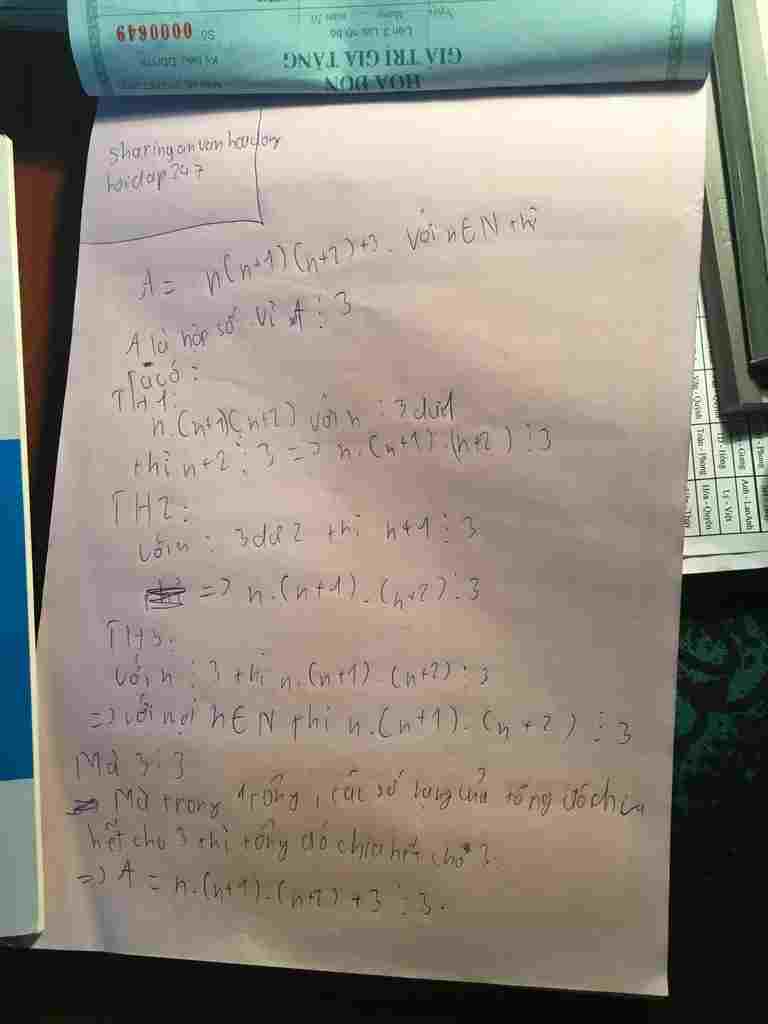 0000649
Số
GIÁ TRỊ GIA TĂNG
HÓA ĐƠN
sharinganvanhoadong
hoidap247
A = n(n+1)(n+2)+3. với n∈N thì
A là hợp số vì A ⋮ 3
Ta có:
TH1:
n.(n+1)(n+2) với n : 3 dư 1
thì n+2 ⋮ 3 => n.(n+1).(n+2) ⋮ 3
TH2:
với n : 3 dư 2 thì n+1 ⋮ 3
=> n.(n+1).(n+2) ⋮ 3
TH3:
với n ⋮ 3 thì n.(n+1).(n+2) ⋮ 3
=> với mọi n∈N thì n.(n+1).(n+2) ⋮ 3
Mà 3 ⋮ 3
Mà trong 1 tổng, các số hạng của tổng đó chia
hết cho 3 thì tổng đó chia hết cho 3
=> A = n.(n+1).(n+2) + 3 ⋮ 3.